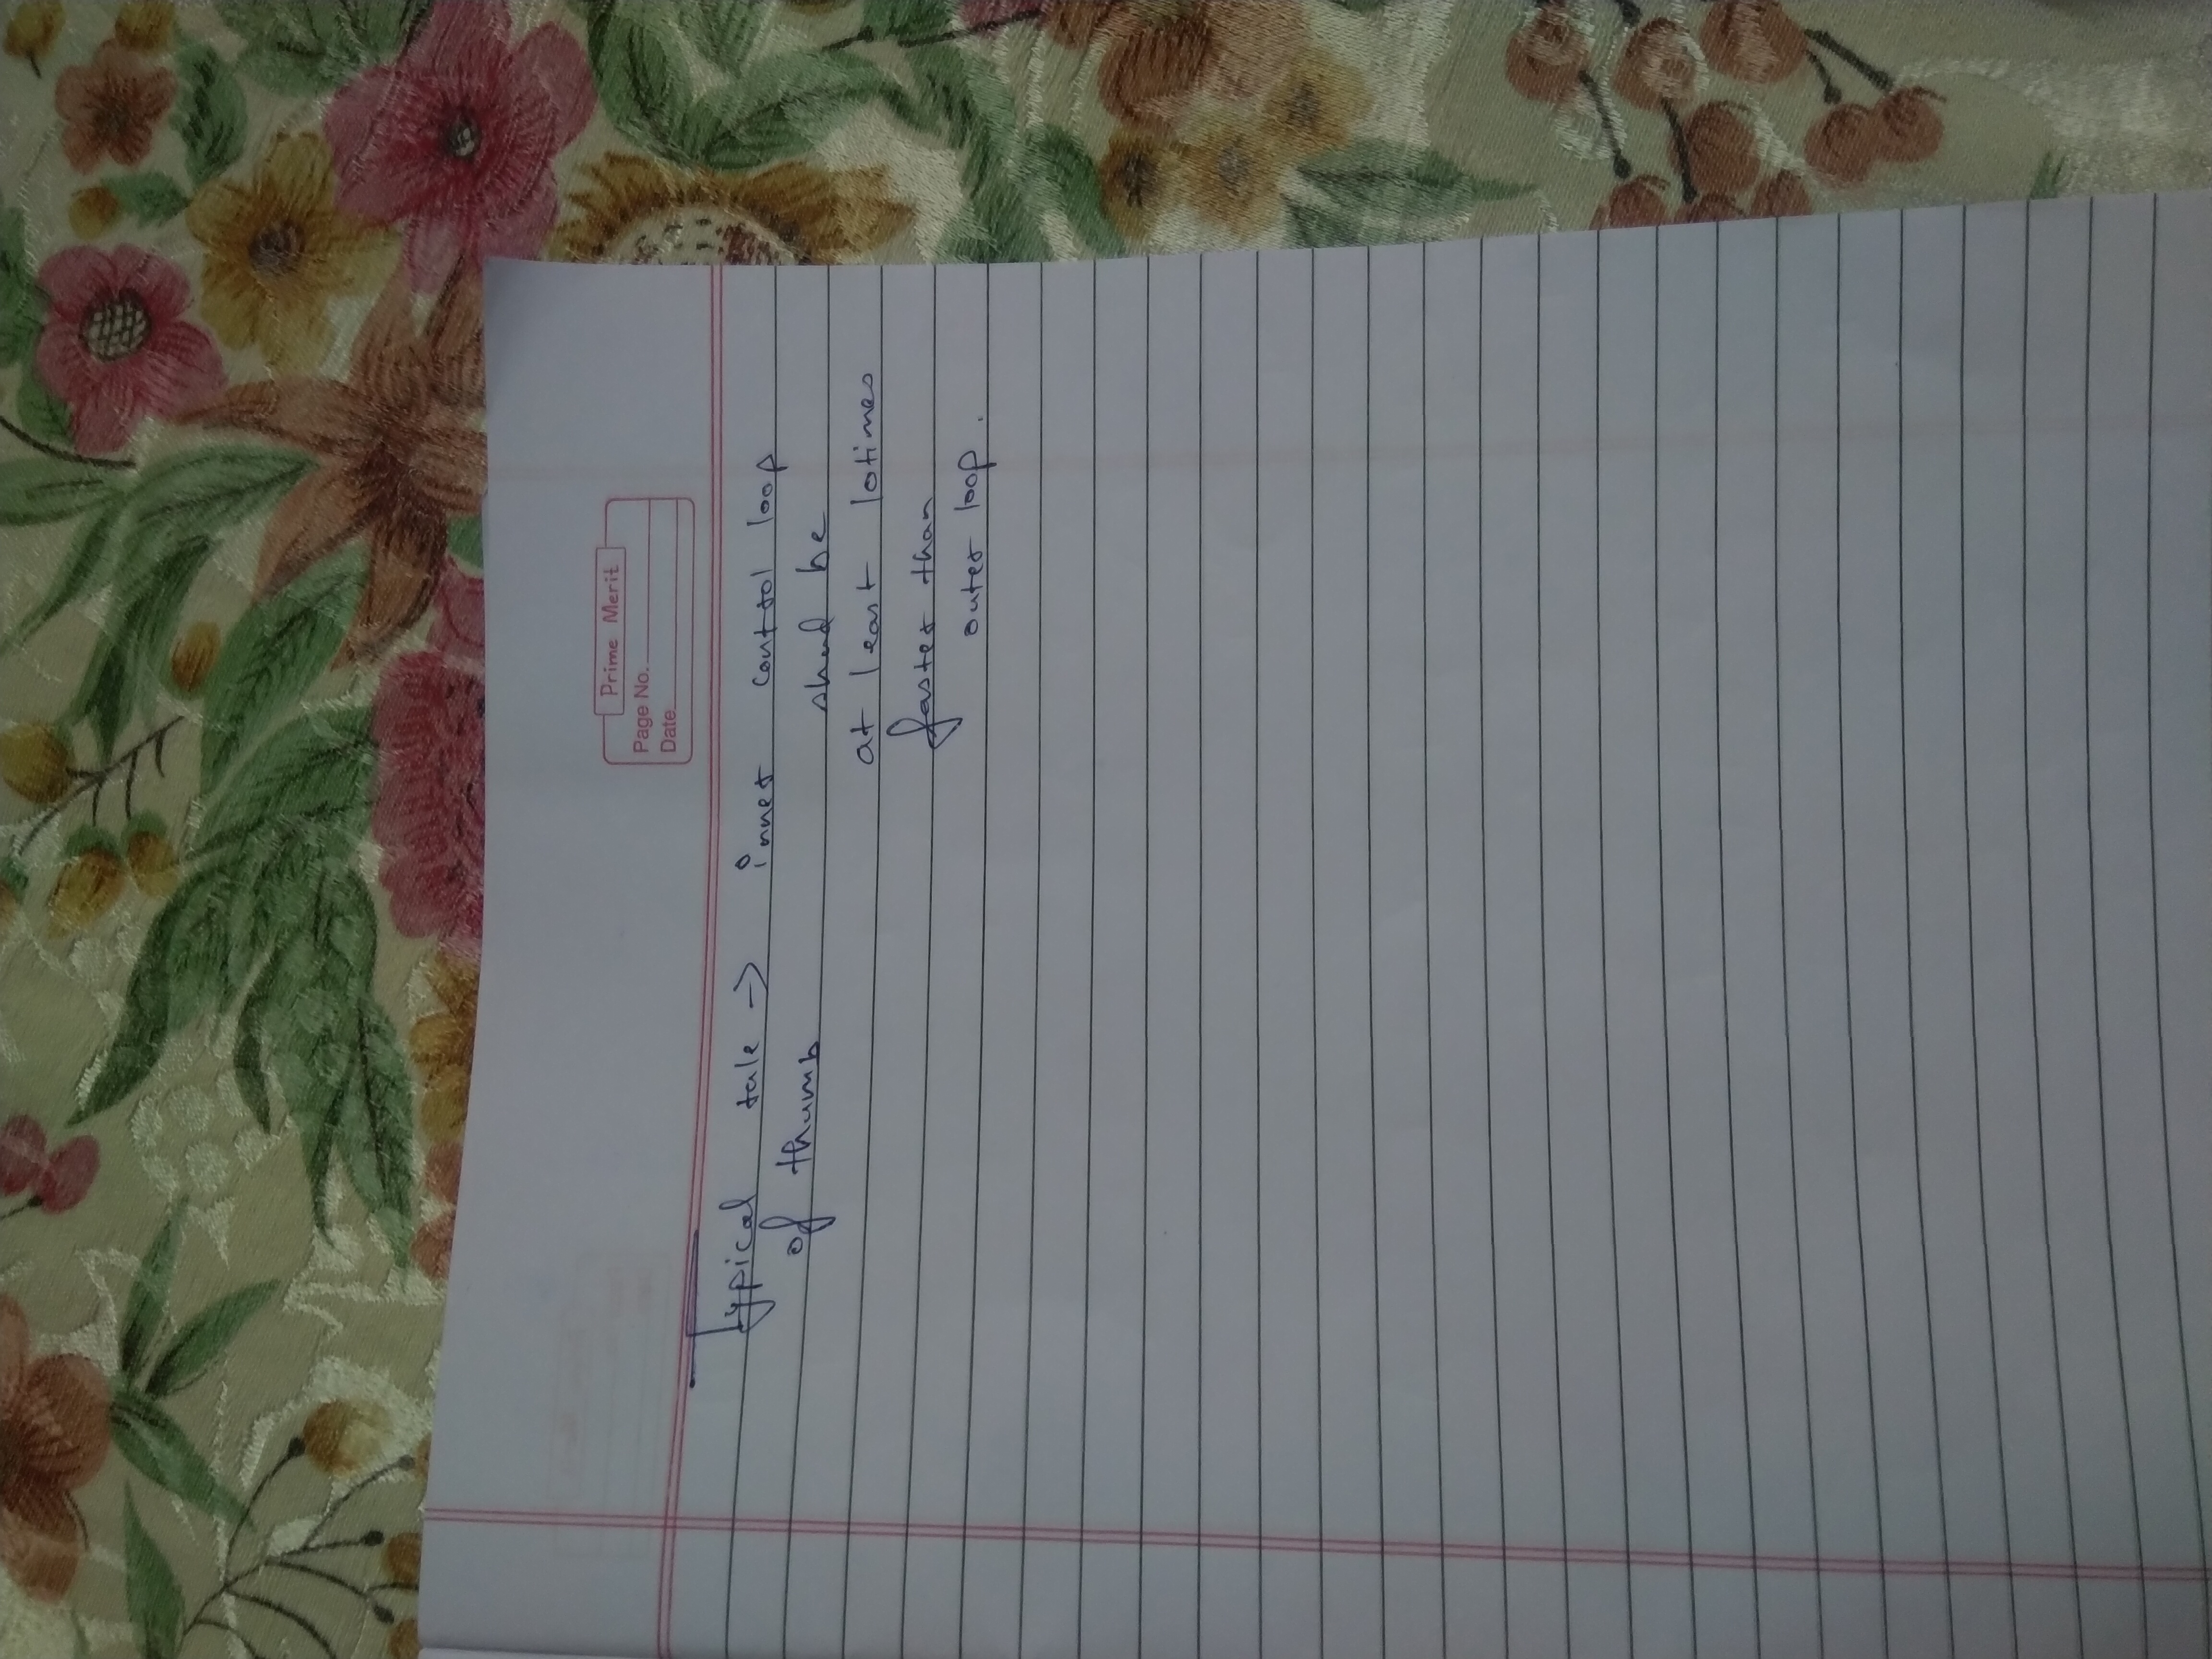 Prime Merit
Page No.
Date
Typical rule → inner control loop
of thumb shud be
at least 10times
faster than
outer loop.